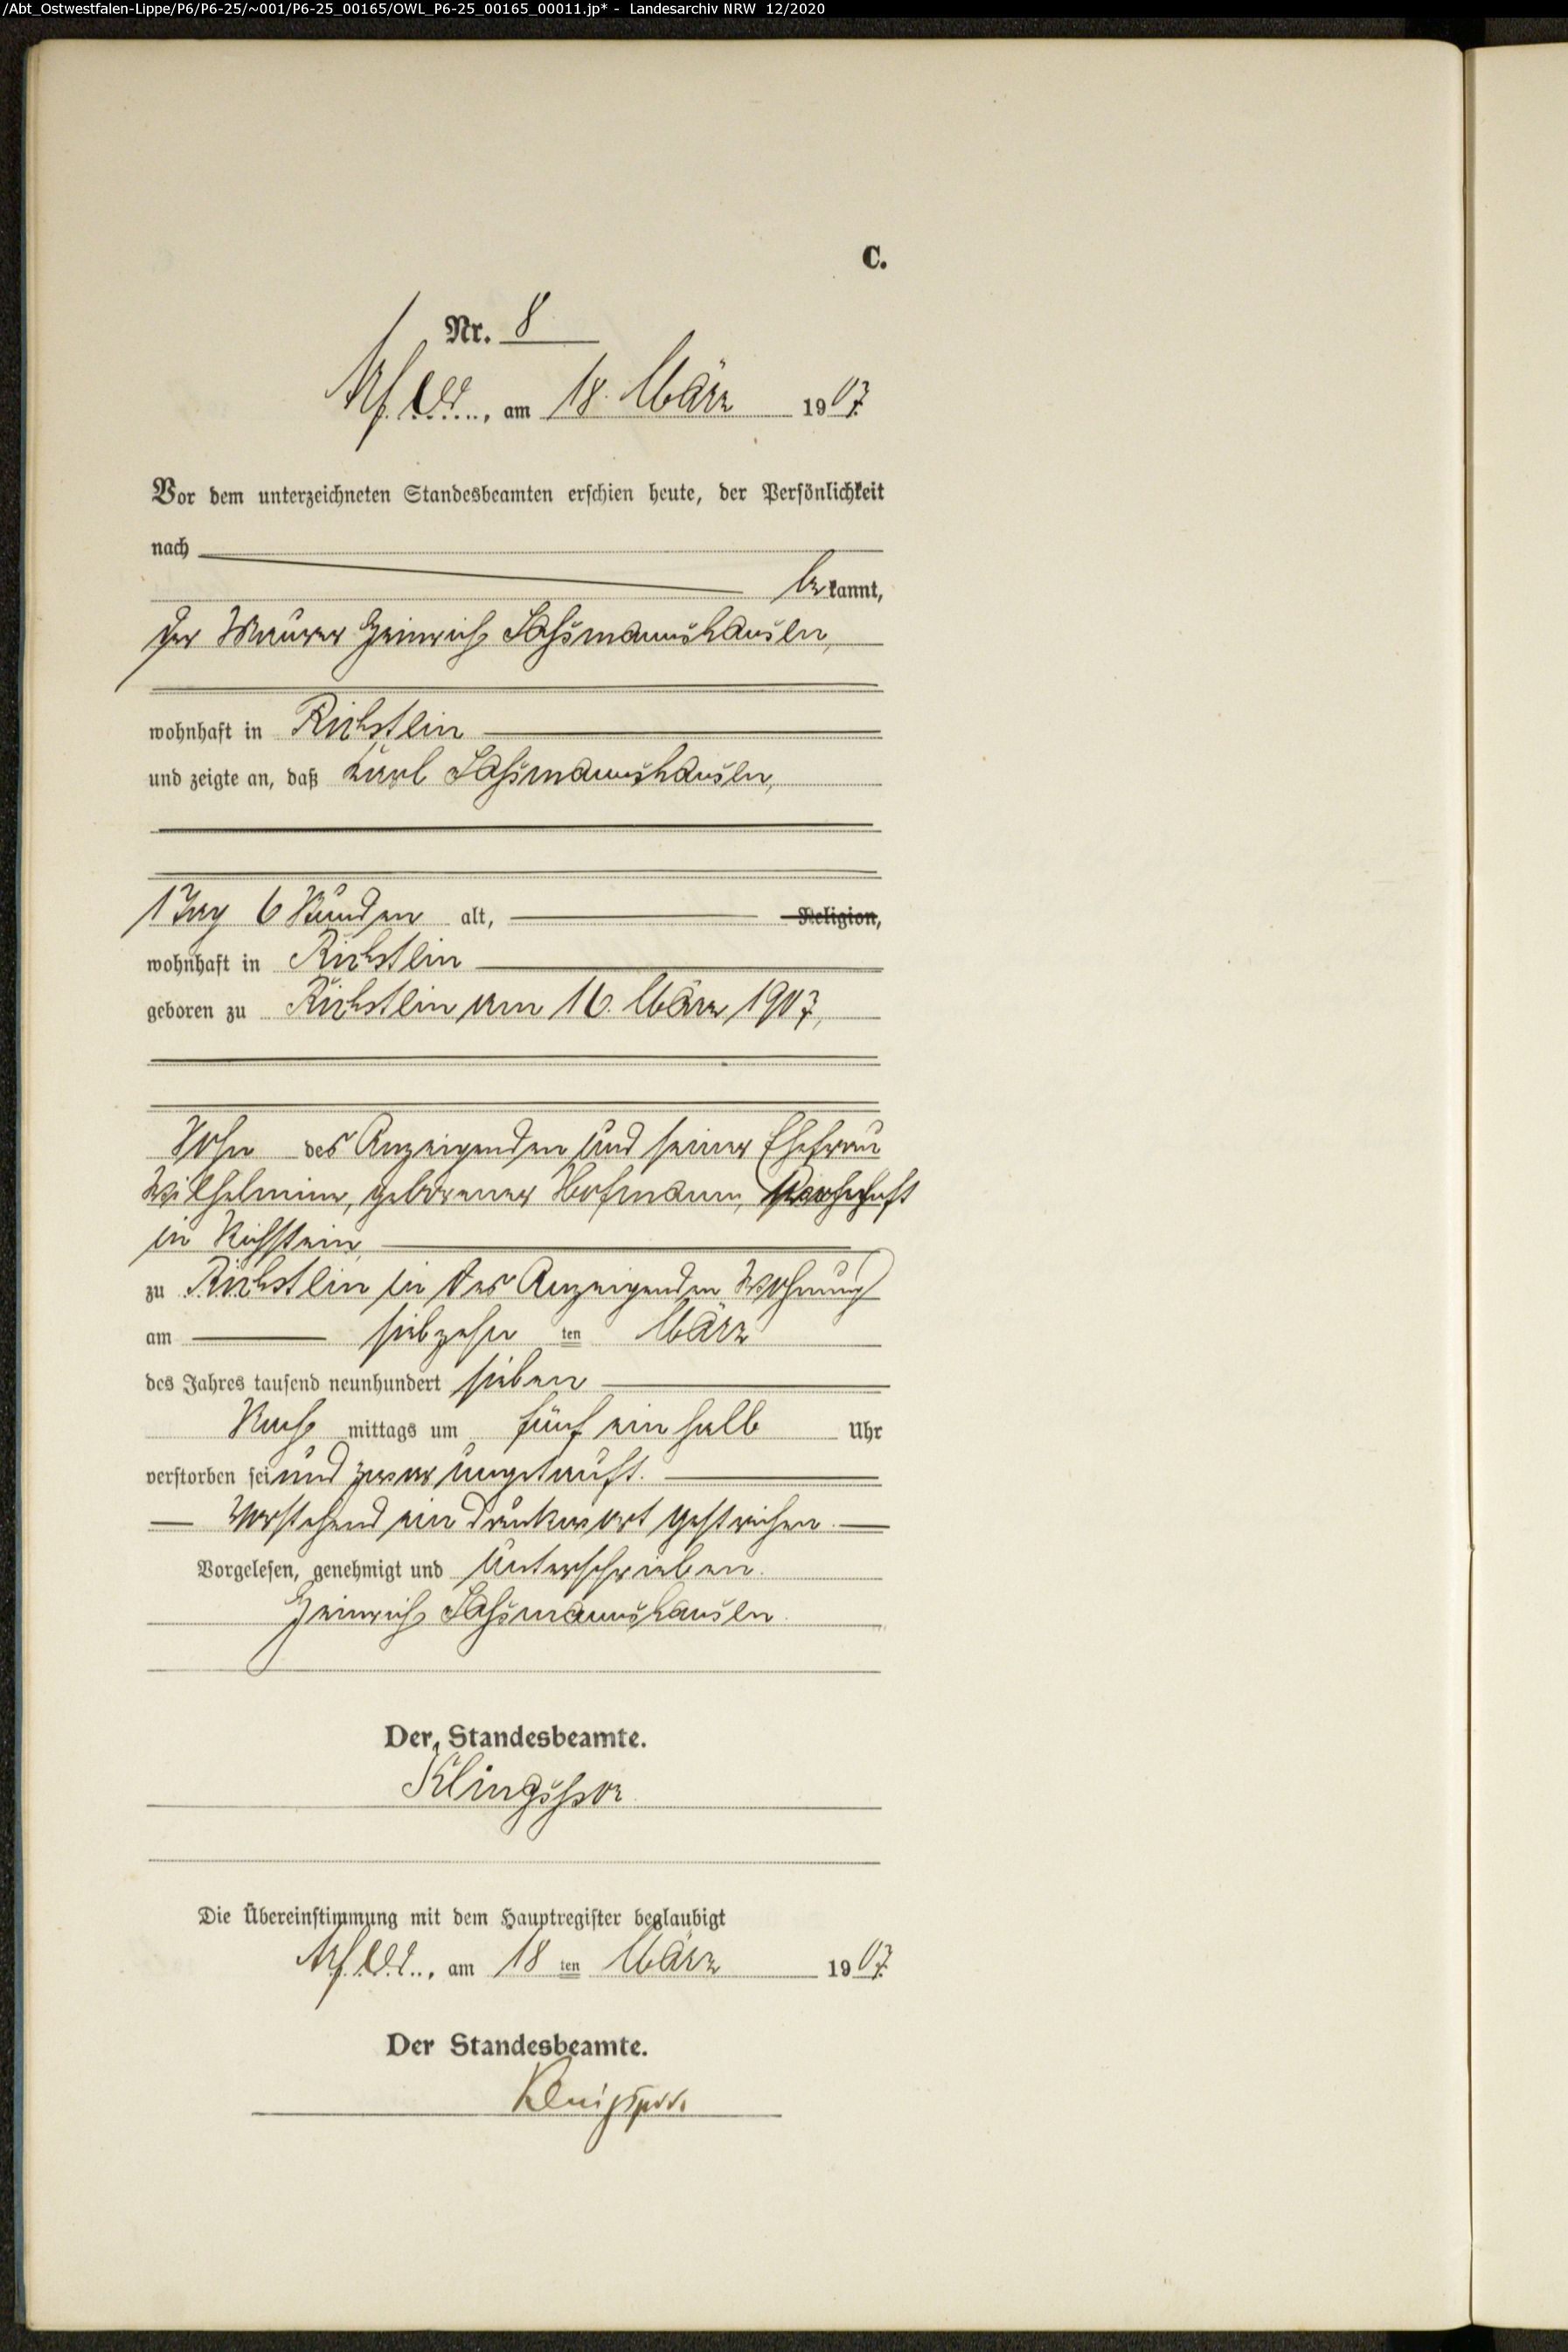 /Abt_Ostwestfalen-Lippe/P6/P6-25/~001/P6-25_00165/OWL_P6-25_00165_00011.jp* - Landesarchiv NRW 12/2020
C.
Nr. 8
am 18. März 1907.
Vor dem unterzeichneten Standesbeamten erschien heute, der Persönlichkeit
nach
bekannt,
der Maurer Heinrich Saßmannshausen,
wohnhaft in Richstein
und zeigte an, daß Karl Saßmannshausen,
1 Tag 6 Stunden alt, Religion,
wohnhaft in Richstein
geboren zu Richstein am 16. März 1907,
Sohn des Anzeigenden und seiner Ehefrau
Wilhelmine, geborener Hofmann, wohnhaft
in Richstein,
zu Richstein in des Anzeigenden Wohnung
am siebzehn ten März
des Jahres tausend neunhundert sieben
Nach mittags um fünf ein halb Uhr
verstorben sei und zwar ungetauft.
Vorstehend ein Druckwort gestrichen.
Vorgelesen, genehmigt und unterschrieben.
Heinrich Saßmannshausen.
Der Standesbeamte.
Klingspor
Die Übereinstimmung mit dem Hauptregister beglaubigt
am 18 ten März 1907.
Der Standesbeamte.
Klingspor.